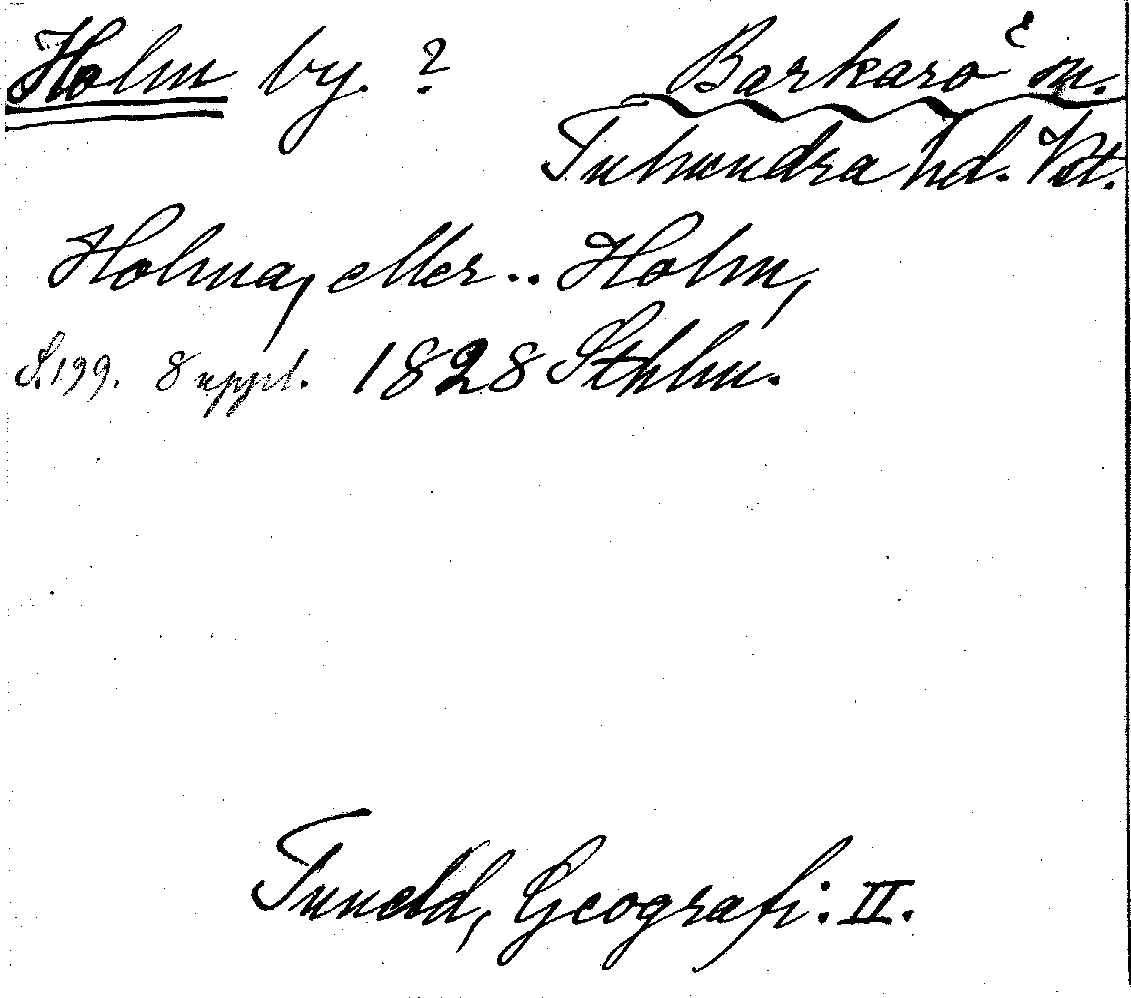 Holm by. ? Barkarö sn.
Tuhundra hd. Vstl.
Holma, eller .. Holm,
S. 199. 8 uppl. 1828 Sthlm.
Tuneld, Geografi: II.